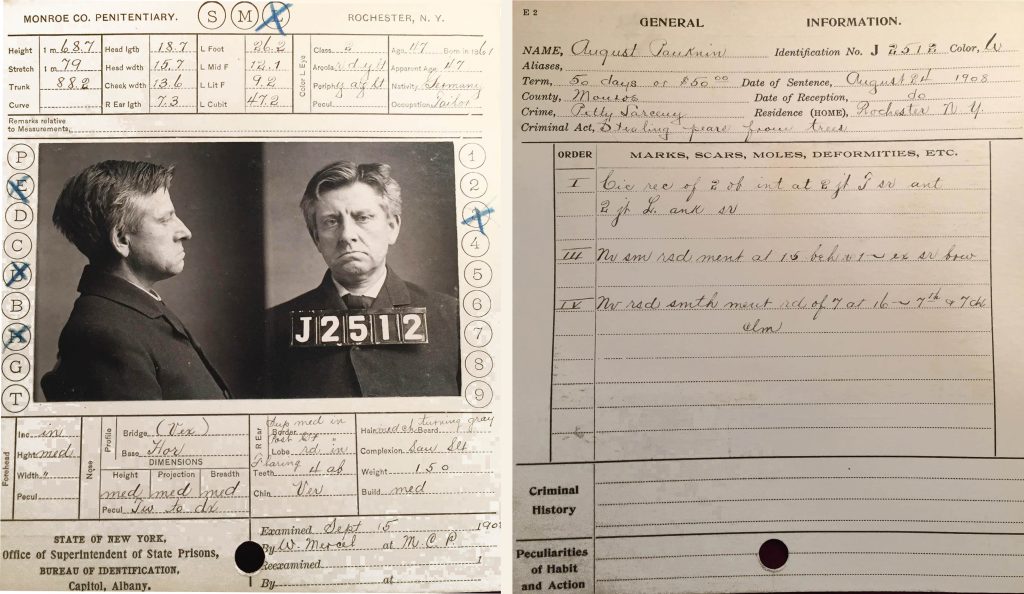 MONROE CO. PENITENTIARY. S M L ROCHESTER, N. Y.
Height 1 m. 68.7 Head lgth 18.7 L Foot 26.2 Class Age, 47 Born in 1861
Stretch 1 m. 79 Head wdth 15.7 L Mid F 12.1 Areola Apparent Age, 47
Trunk 88.2 Cheek wdth 13.6 L Lit F 9.2 Periph Nativity, Germany
Curve R Ear lgth 7.3 L Cubit 47.2 Pecul. Occupation, Tailor
Color L Eye
Remarks relative
to Measurements,
P
E
D
C
B
G
T
1
2
4
5
6
7
8
9
J2512
Forehead
Inc. in
Hght med
Width "
Pecul
Nose
Profile
Bridge (Vex)
Base Hor
DIMENSIONS
Height Projection Breadth
med med med
Pecul Tw to dx
R Ear
Border Sup med in
Post
Lobe rd in
Flaring
Teeth
Chin Ver
Hair med ch turning gray
Beard
Complexion
Weight 150
Build med
STATE OF NEW YORK,
Office of Superintendent of State Prisons,
BUREAU OF IDENTIFICATION,
Capitol, Albany.
Examined Sept 15 190
By W. Mercel at M. C. P.
Reexamined 1
By at
E 2
GENERAL INFORMATION.
NAME, August Pauknin Identification No. J 2512 Color, W
Aliases,
Term, 50 days or $50 00 Date of Sentence, August 24 1908
County, Monroe Date of Reception, do
Crime, Petty Larceny Residence (HOME), Rochester N. Y.
Criminal Act, Stealing pears from trees
ORDER MARKS, SCARS, MOLES, DEFORMITIES, ETC.
I Cic rec of 2 ob int at 2 jt F sr ant
2 jt L. ank sr
III Nv sm rsd ment at 15
IV Nv rsd smth ment rd of 7 at 16 7th
Criminal
History
Peculiarities
of Habit
and Action